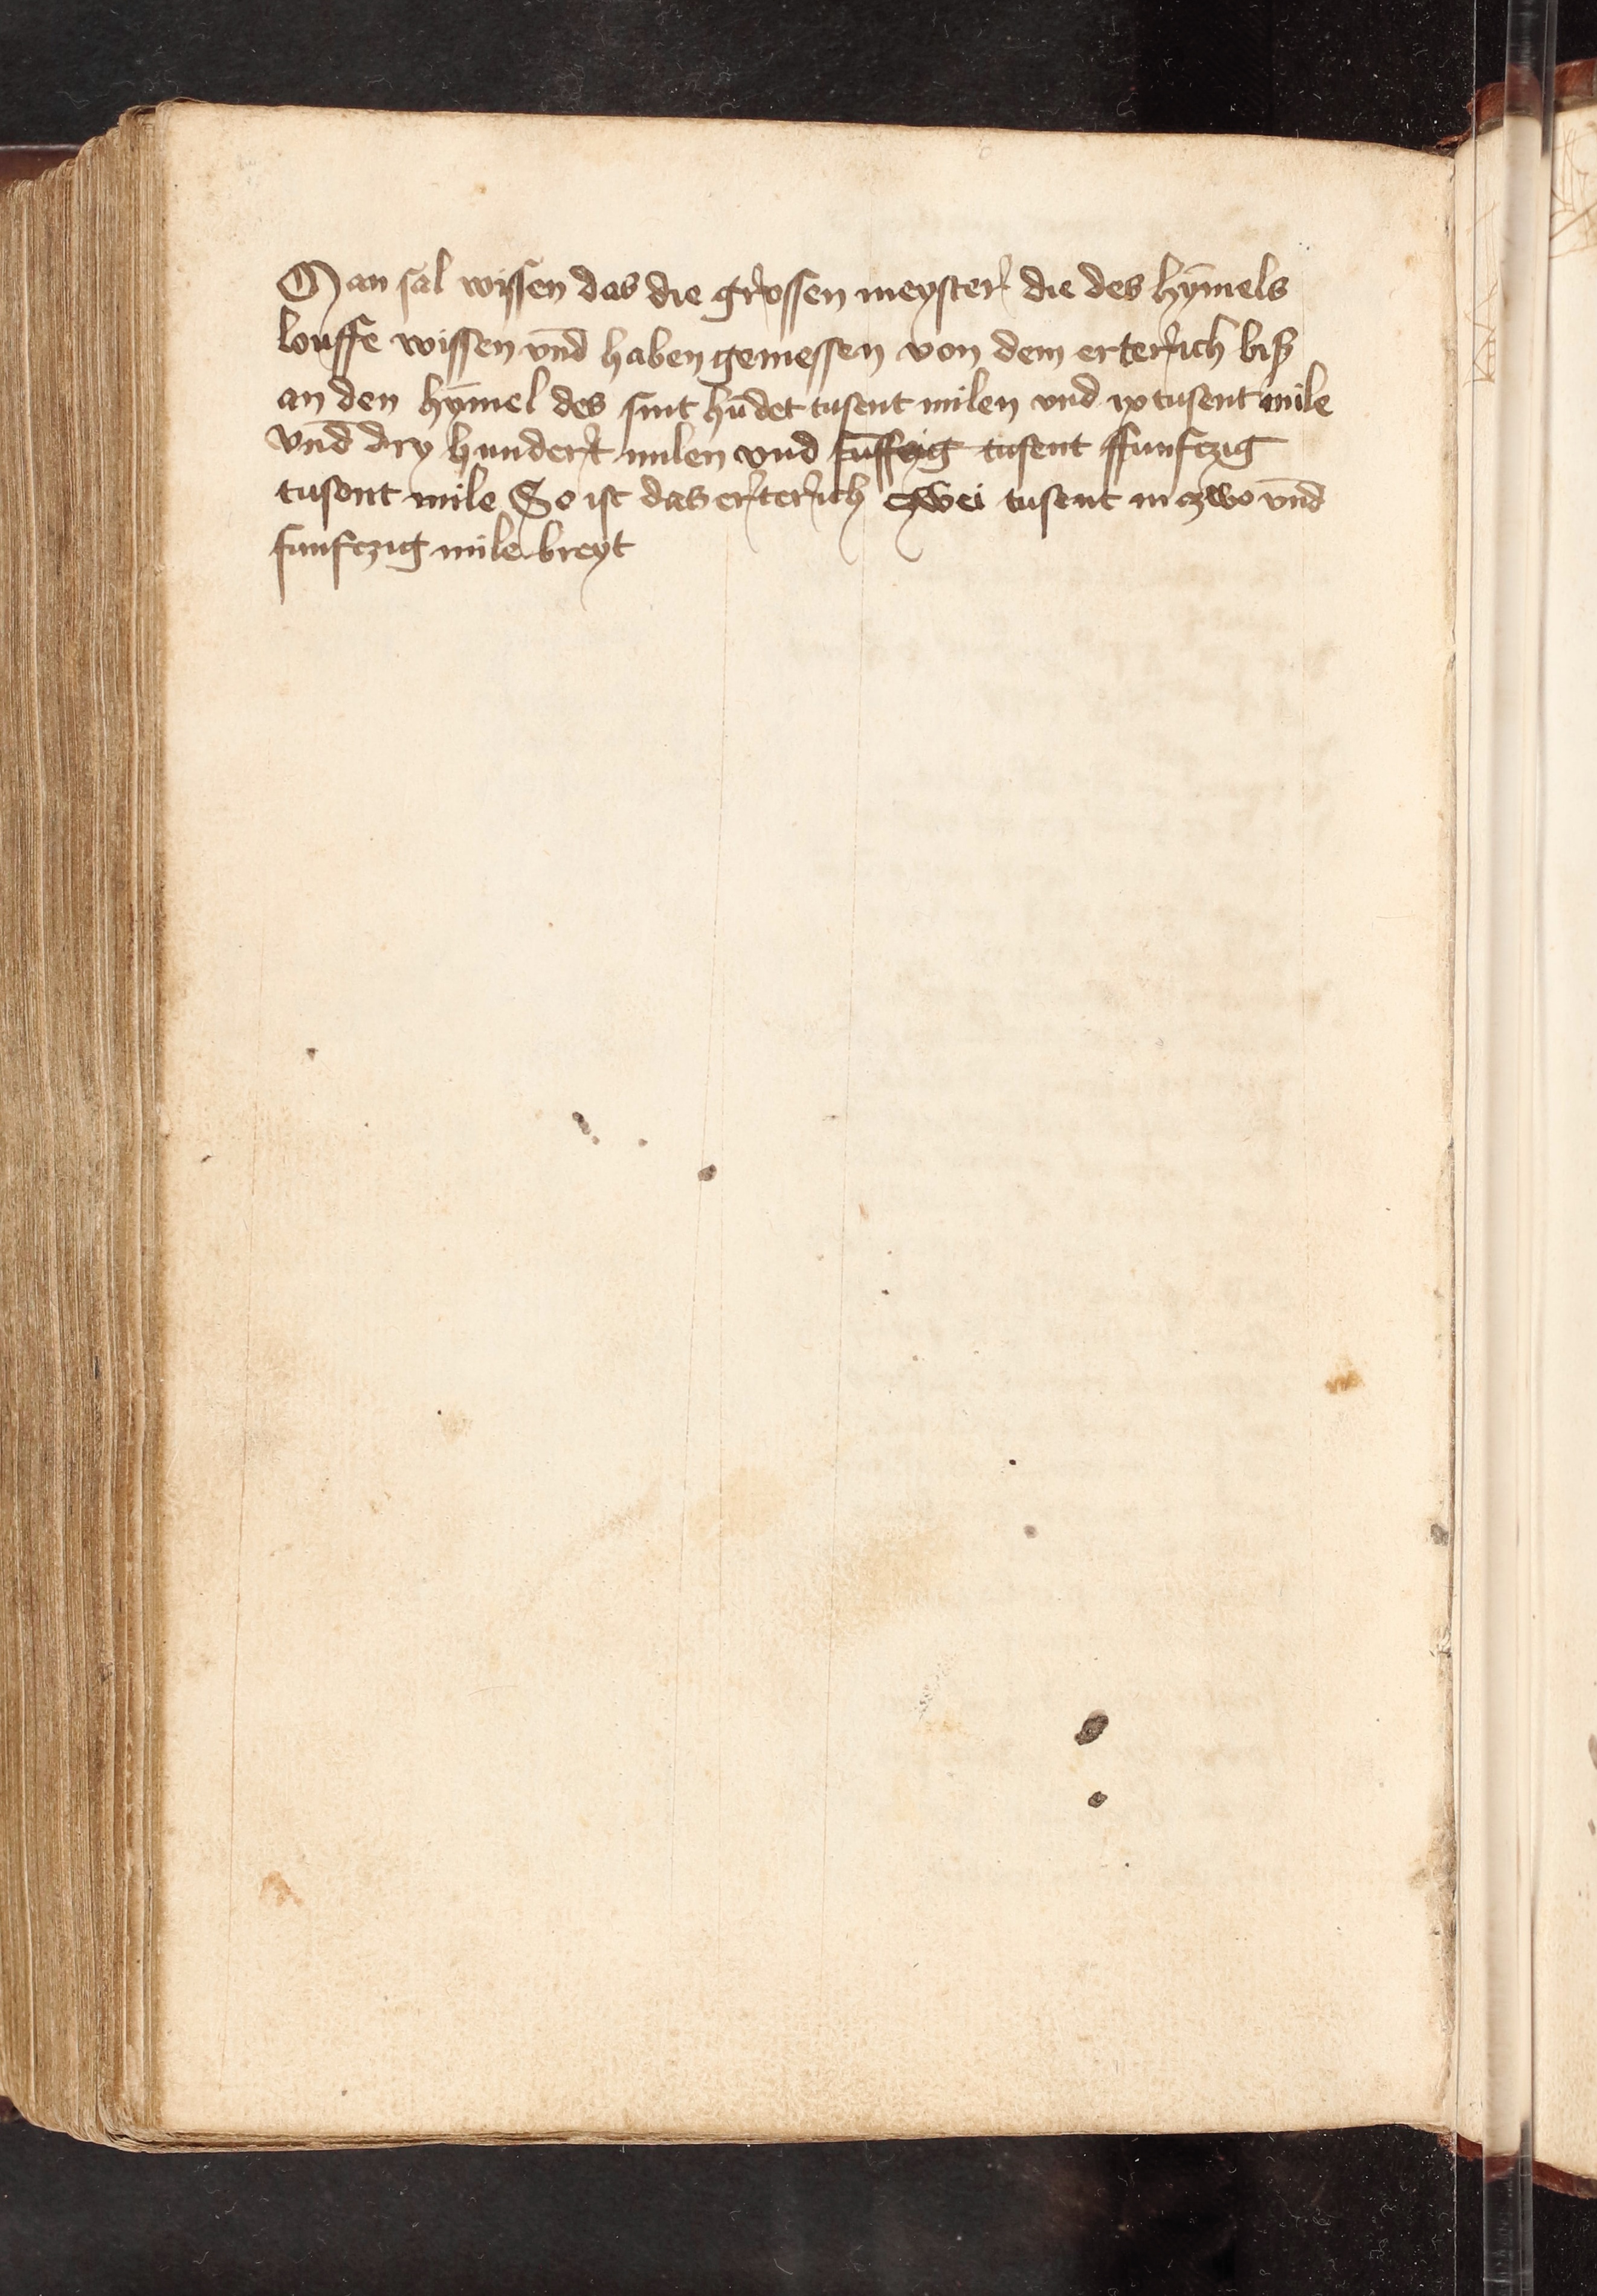 Man sal wissen das die grossen meyster die des hȳmels
louffe wissen vnd̄ haben gemessen von dem erterich biß
an den hȳmel des sint hūdet tusent milen vnd ix tusent mile
vnd̄ dry hundert milen vnd fūffzig tusent ffunfczig
tusent mile So ist das erterich czwei tusent m czwo vnd̄
funfczig mile breyt